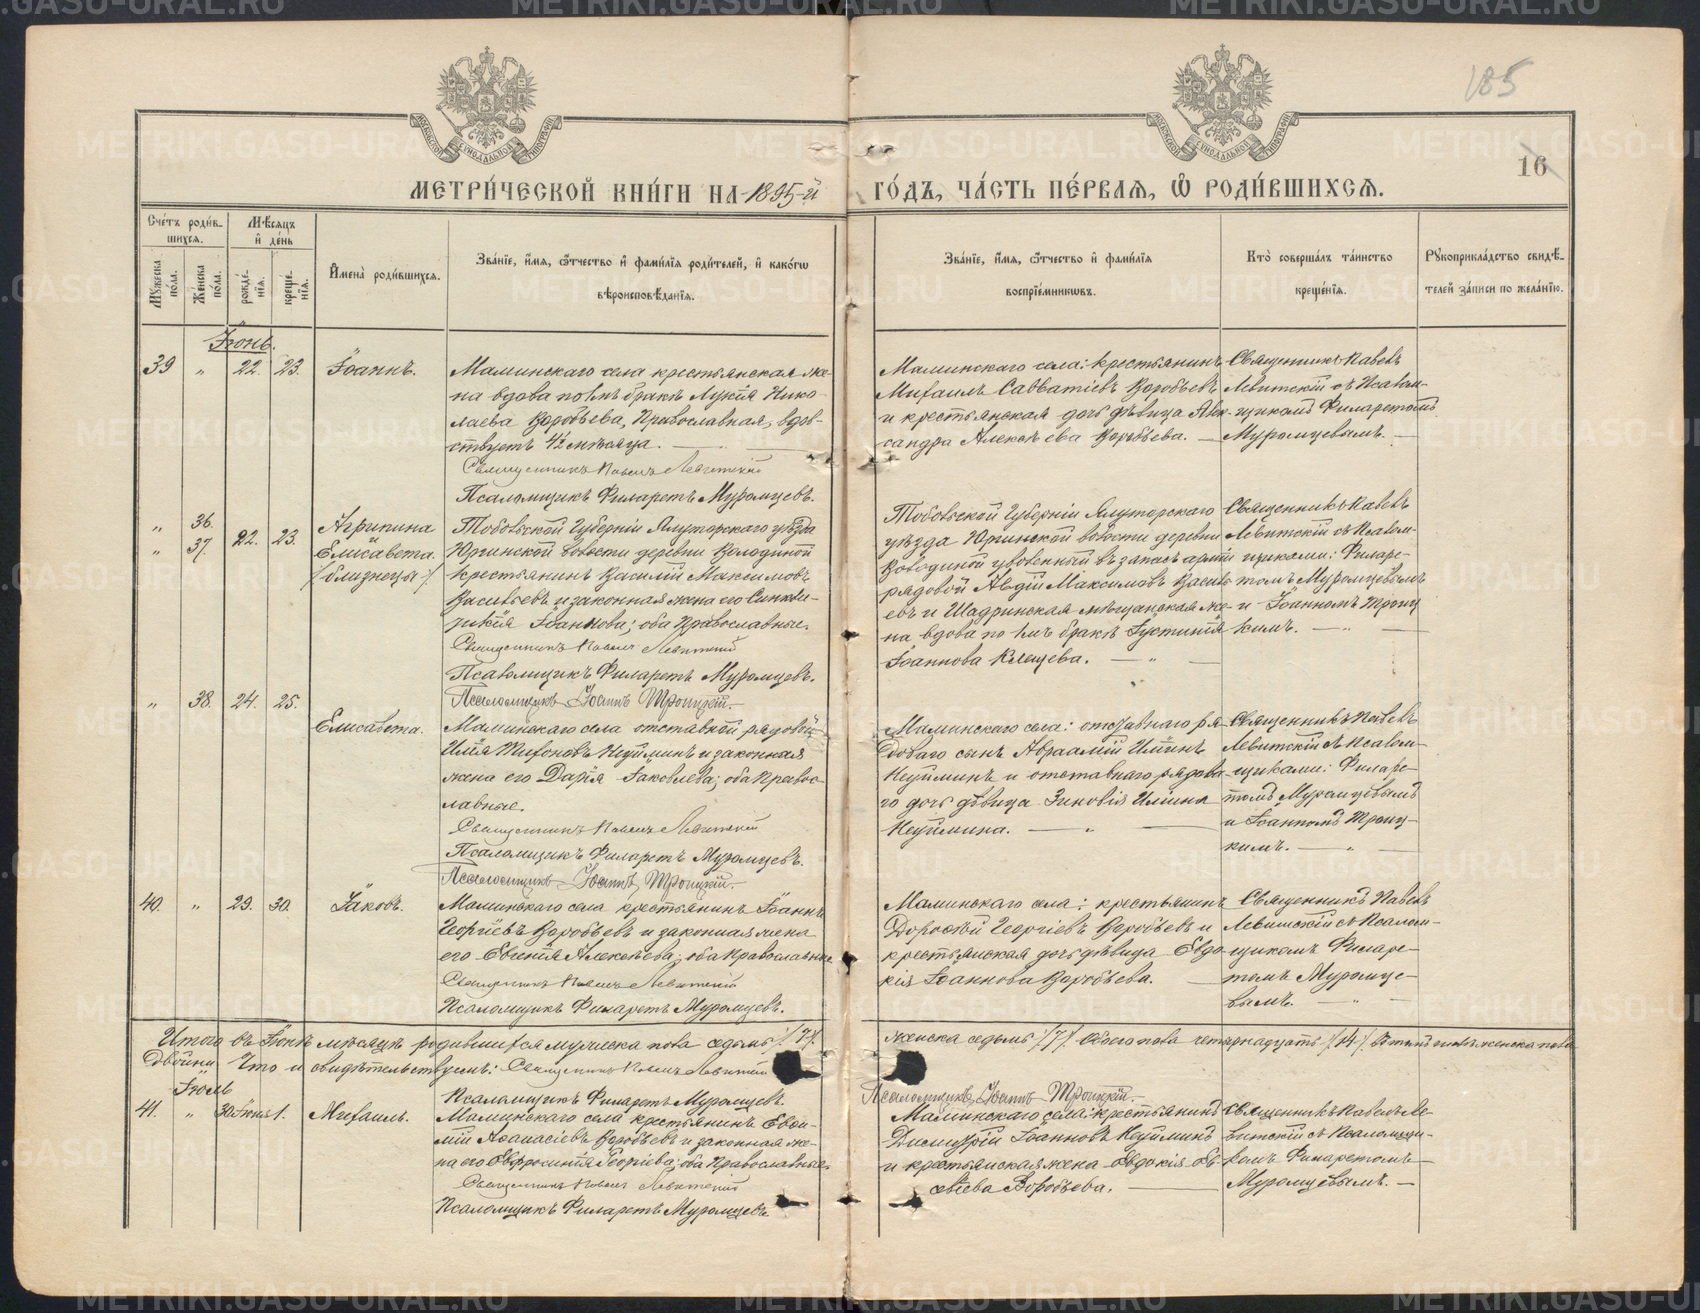 METRIKI.GASO-URAL.RU
185
16
МОСКОВСКОЙ СѴНОДАЛЬНОЙ ТИПОГРАФІИ
МЕТРИ́ЧЕСКОЙ КНИ́ГИ НА 1895-й ГО́ДЪ, ЧА́СТЬ ПЕ́РВАЯ, Ѡ РОДИ́ВШИХСЯ.
Сче́тъ роди́в-
шихся.
Мѣ́сяцъ
и де́нь
Му́жеска по́ла.
Же́нска по́ла.
рожде́нїя.
креще́нїя.
И҆мена̀ роди́вшихся.
Зва́нїе, и҆́мя, ѻ҆́тчество и҆ фами́лїя роди́телей, и҆ како́гѡ
вѣроисповѣ́данїя.
Зва́нїе, и҆́мя, ѻ҆́тчество и҆ фами́лїя
воспрїе́мникѡвъ.
Кто̀ соверша́лъ та́инство
креще́нїя.
Рꙋкоприкла́дство свидѣ́-
телей за́писи по жела́нїю.
Іюнь.
39 " 22. 23. Іоаннъ.
Маминскаго села крестьянская же-
на вдова по 1мъ бракѣ Лукія Нико-
лаева Воробьева, Православная, вдов-
ствуетъ 4½ мѣсяца.
Священникъ Павелъ Левитскій
Псаломщикъ Филаретъ Муромцевъ.
Маминскаго села: крестьянинъ
Михаилъ Савватіевъ Воробьевъ
и крестьянская дочь дѣвица Алек-
сандра Алексѣева Воробьева.
Священникъ Павелъ
Левитскій съ Псалом-
щикомъ Филаретомъ
Муромцевымъ.
" 36. 22. 23. Агрипина
" 37. Елисавета.
/близнецы/
Тобольской Губерніи Ялуторскаго уѣзда
Юргинской волости деревни Володиной
крестьянинъ Василій Максимовъ
Васильевъ и законная жена его Синкли-
тикія Іоаннова; оба Православные.
Священникъ Павелъ Левитскій
Псаломщикъ Филаретъ Муромцевъ.
Псаломщикъ Іоаннъ Троицкій.
Тобольской Губерніи Ялуторскаго
уѣзда Юргинской волости деревни
Володиной уволенный въ запасъ арміи
рядовой Авдій Максимовъ Василь-
евъ и Шадринская мѣщанская же-
на вдова по 1мъ бракѣ Іустинія
Іоаннова Клещева.
Священникъ Павелъ
Левитскій съ Псалом-
щиками: Филаре-
томъ Муромцевымъ
и Іоанномъ Троиц-
кимъ.
" 38. 24. 25. Елисавета.
Маминскаго села отставной рядовой
Илія Тихоновъ Неуйминъ и законная
жена его Дарія Іаковлева; оба Правос-
лавные.
Священникъ Павелъ Левитскій
Псаломщикъ Филаретъ Муромцевъ.
Псаломщикъ Іоаннъ Троицкій.
Маминскаго села: отставнаго ря-
доваго сынъ Авраамій Иліинъ
Неуйминъ и отставнаго рядова-
го дочь дѣвица Зиновія Иліина
Неуймина.
Священникъ Павелъ
Левитскій съ Псалом-
щиками: Филаре-
томъ Муромцевымъ
и Іоанномъ Троиц-
кимъ.
40. " 29. 30. Іаковъ.
Маминскаго села крестьянинъ Іоаннъ
Георгіевъ Воробьевъ и законная жена
его Евгенія Алексѣева; оба Православные
Священникъ Павелъ Левитскій
Псаломщикъ Филаретъ Муромцевъ.
Маминскаго села: крестьянинъ
Дорофей Георгіевъ Воробьевъ и
крестьянская дочь дѣвица Евдо-
кія Іоаннова Воробьева.
Священникъ Павелъ
Левитскій съ Псалом-
щикомъ Филаре-
томъ Муромце-
вымъ.
Итого въ Іюнѣ мѣсяцѣ родившихся мужеска пола седмь /7/. женска седмь /7/ обоего пола четырнадцать /14/. Въ томъ числѣ женска пола
двойни. Что и свидѣтельствуемъ: Священникъ Павелъ Левитскій
Псаломщикъ Филаретъ Муромцевъ.
Псаломщикъ Іоаннъ Троицкій.
Іюль
41. " 30 Іюня 1. Михаилъ.
Маминскаго села крестьянинъ Евѳи-
мій Аѳанасіевъ Воробьевъ и законная же-
на его Евфросинія Георгіева; оба Православные.
Священникъ Павелъ Левитскій
Псаломщикъ Филаретъ Муромцевъ
Маминскаго села: крестьянинъ
Димитрій Іоанновъ Неуйминъ
и крестьянская жена Евдокія Ев-
сѣева Воробьева.
Священникъ Павелъ Ле-
витскій съ Псаломщи-
комъ Филаретомъ
Муромцевымъ.